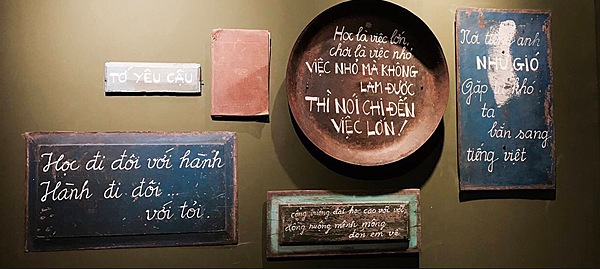 TỚ YÊU CẬU
Học là việc lớn..
chơi là việc nhỏ
VIỆC NHỎ MÀ KHÔNG
LÀM ĐƯỢC
THÌ NÓI CHI ĐẾN
VIỆC LỚN !
Nói tiếng anh
NHƯ GIÓ
Gặp từ khó
ta
bắn sang
tiếng việt
Học đi đôi với hành
Hành đi đôi ...
với tỏi.
cổng trường đại học cao vời vợi
đồng ruộng mênh mông
đón em về